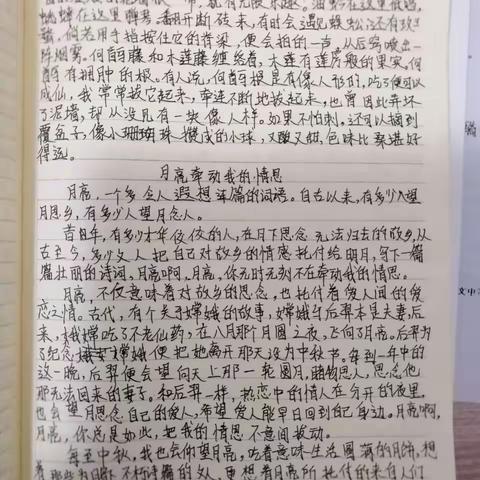 就有无限乐趣。油蛉在这里低唱,
蟋蟀在这里弹琴。翻开断砖来,有时会遇见蜈蚣;还有斑
蝥,倘若用手指按住它的脊梁,便会拍的一声,从后窍喷出一
阵烟雾。何首乌藤和木莲藤缠络着,木莲有莲房般的果实,何
首乌有拥肿的根。有人说,何首乌根是有像人形的,吃了便可以
成仙,我常常拔它起来,牵连不断地拔起来,也曾因此弄坏
了泥墙,却从没见有一块像人样。如果不怕刺,还可以摘到
覆盆子,像小珊瑚珠攒成的小球,又酸又甜,色味比桑葚好
得远。
月亮牵动我的情思
月亮,一个多令人遐想连篇的词语。自古以来,有多少人望
月思乡,有多少人望月念人。
昔日年,有多少才华的人,在月下思念无法归去的故乡,从
古至今,多少文人把自己对故乡的情感托付给明月,写下一篇
篇壮丽的诗词。月亮啊,月亮,你无时无刻不在牵动我的情思。
月亮,不仅意味着对故乡的思念,也托付着爱人间的爱
恋之情。古代,有个关于嫦娥的故事,嫦娥与后羿本是夫妻,后
来,嫦娥吃了不老仙药,在八月那个月圆之夜,飞向了月亮。后羿为
了纪念嫦娥便把她离开那天设为中秋节。每到一年中的
这一晚,后羿便会望向天上那一轮圆月,睹物思人,思念他
那无法回来的妻子。和后羿一样,热恋中的情人在分开的夜里,
也会望月思念自己的爱人,希望爱人能早日回到自己身边。月亮啊,
月亮,你总是如此,把我的情思不意间拨动。
每至中秋,我也会仰望月亮,吃着意味生活圆满的月饼,想
着那些为 的文人,更想着月亮所托付的来自人们
文中